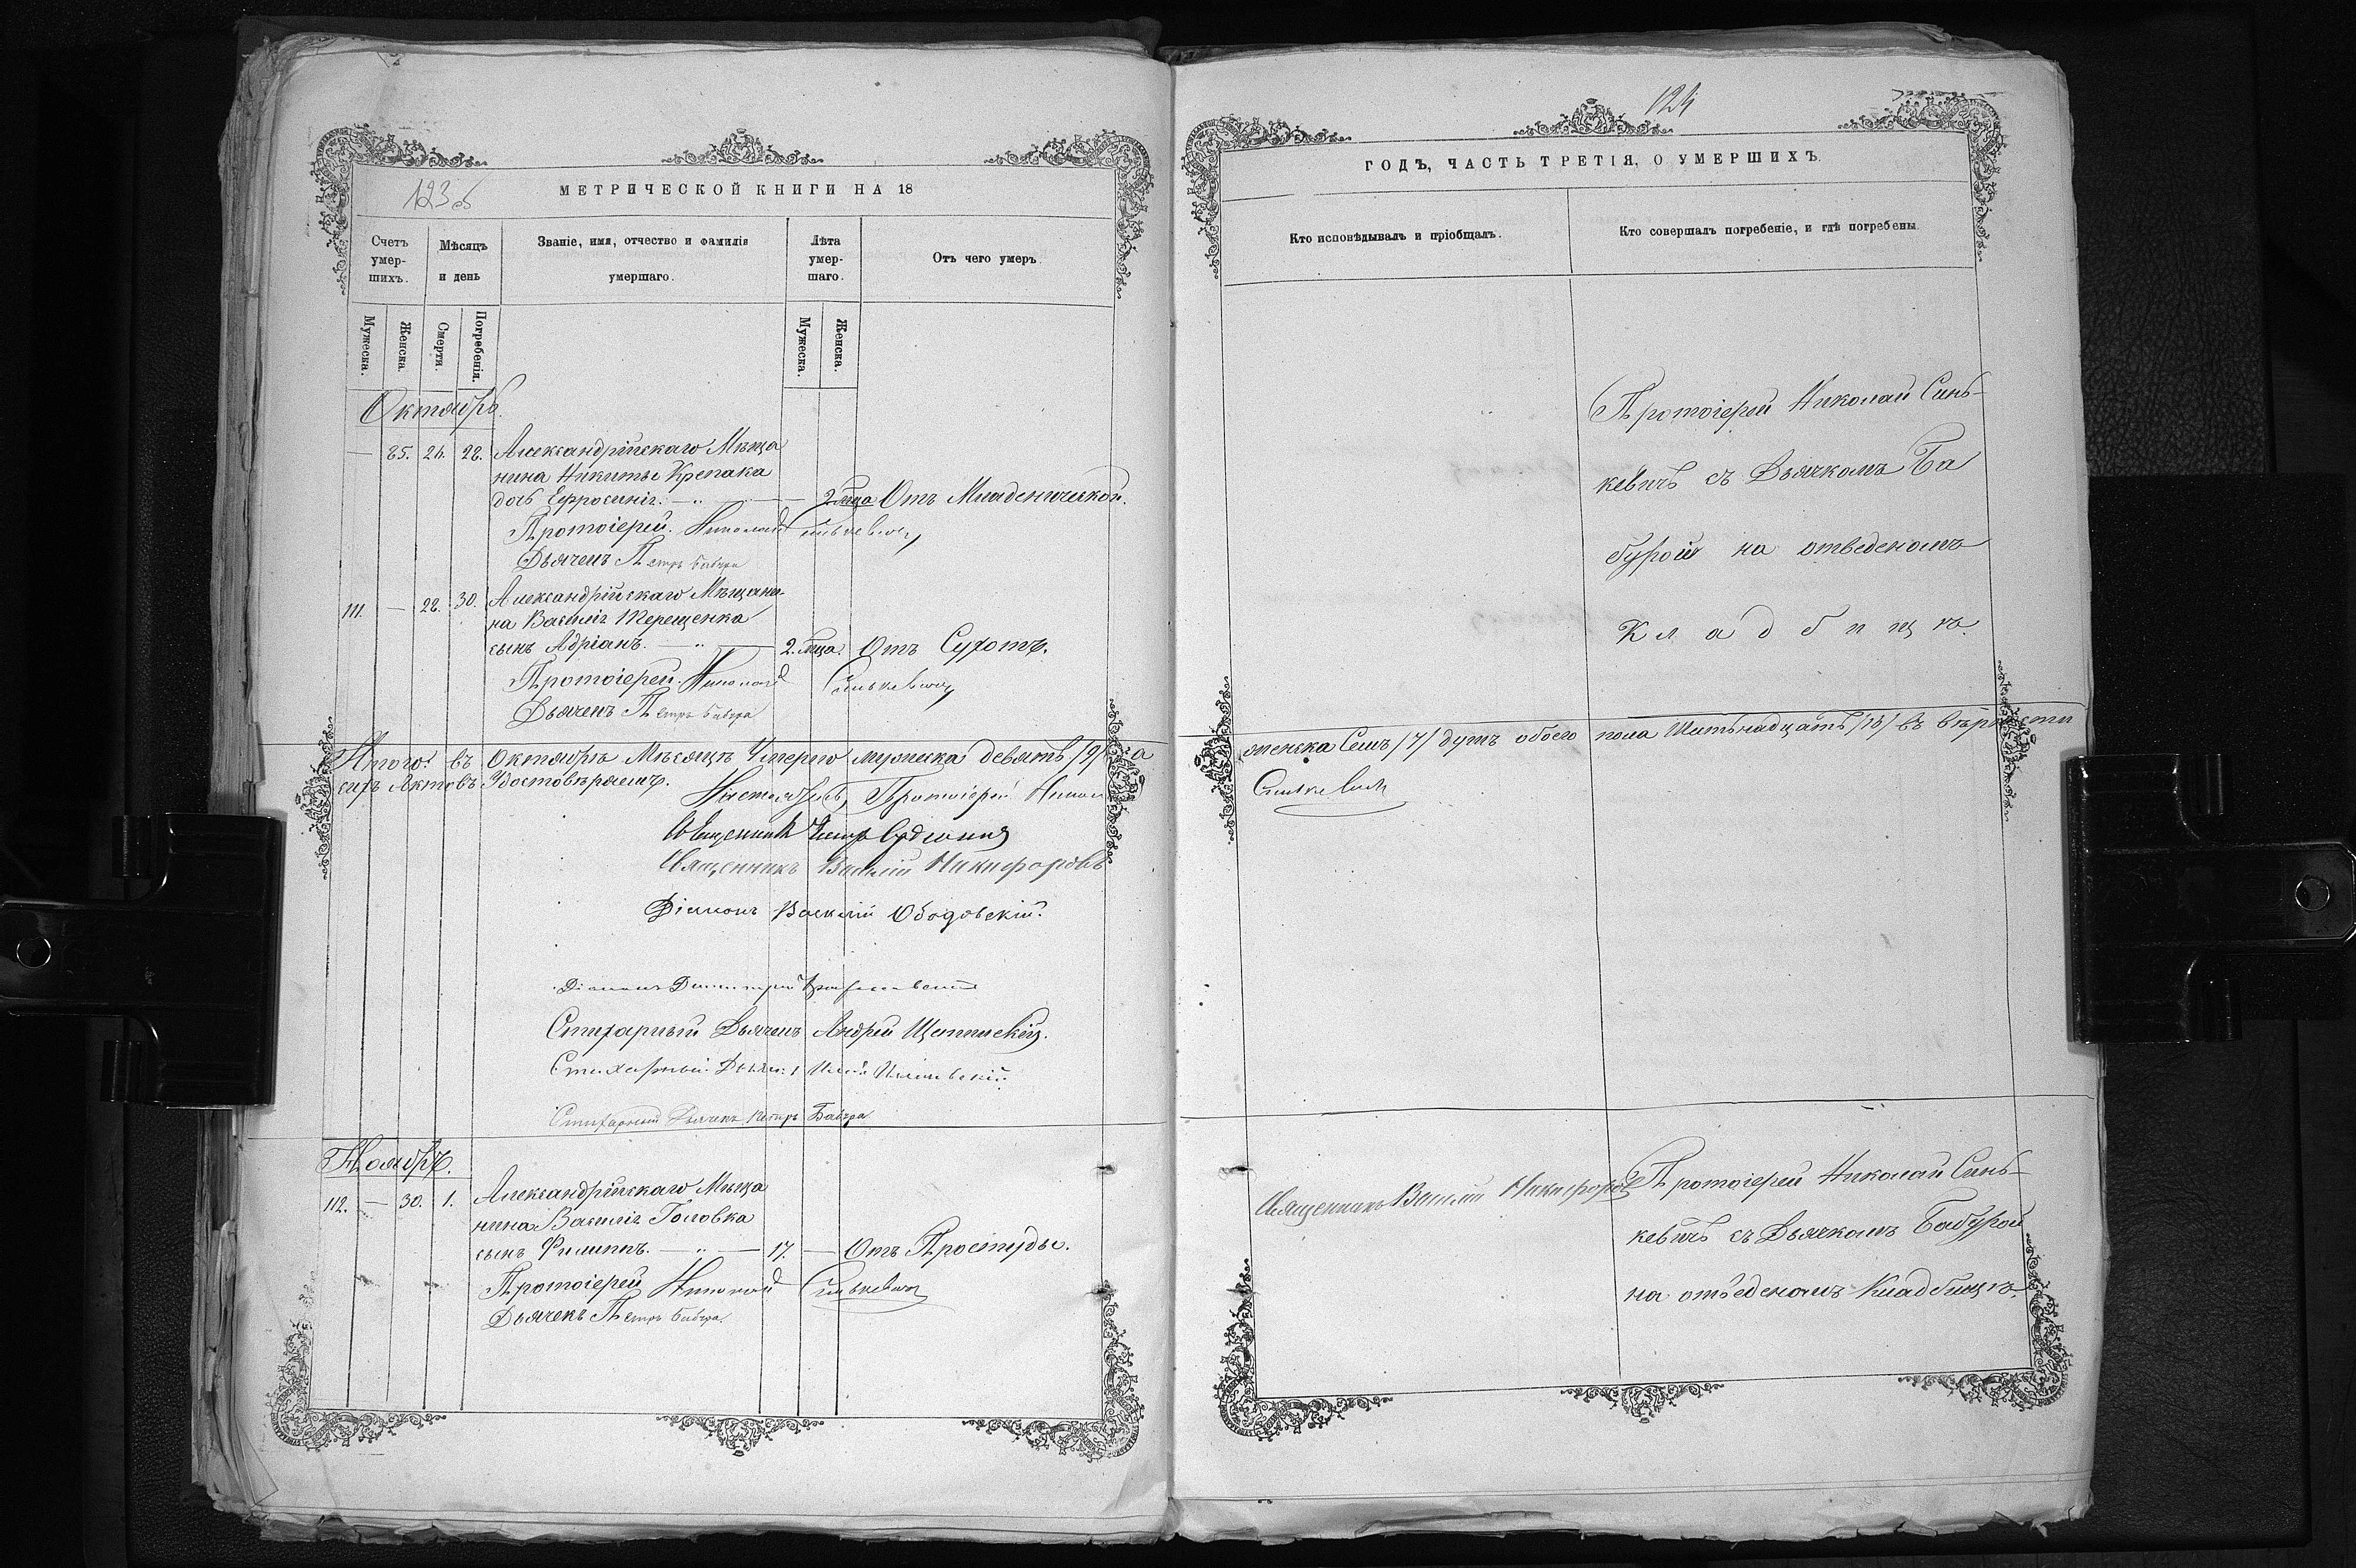 123 об
МЕТРИЧЕСКОЙ КНИГИ НА 18
Счетъ умер-шихъ.
Мѣсяцъ и день
Званіе, имя, отчество и фамилія умершаго.
Лѣта умер-шаго.
Отъ чего умеръ
Мужеска.
Женска.
Смерти.
Погребенія.
Мужеска.
Женска.
Октябрь.
— 85. 26. 28. Александрійскаго Мѣща
нина Никиты Крепака
дочь Ефросинія. — „ — 2 мца Отъ Младенческой.
Протоіерей Николай Синькевичъ
Дьячекъ Петръ Бабура
111. — 28. 30. Александрійскаго Мѣщани-
на Василія Терещенка
сынъ Адріанъ. — „ — 2. мца. Отъ Сухотъ.
Протоіерей Николай Синькевичъ
Дьячекъ Петръ Бабура
Итого въ Октябрѣ Мѣсяцѣ Умерло мужеска девять /9/ а
сихъ Актовъ Удостовѣряемъ.
Настоятель, Протоіерей Никол
Священникъ
Священникъ Василій Никифоровъ
Діаконъ Василій Ободовскій.
Діаконъ Димитрій
Стихарный Дьячекъ Андрей
Стихарный Дьяч:
Стихарный Дьячекъ Петръ Бабура
Ноябрь.
112. — 30. 1. Александрійскаго Мѣща
нина Василія Головка
сынъ Филиппъ. — „ — 17. — Отъ Простуды.
Протоіерей Николай Синькевичъ
Дьячекъ Петръ Бабура
124
ГОДЪ, ЧАСТЬ ТРЕТІЯ, О УМЕРШИХЪ.
Кто исповѣдывалъ и пріобщалъ.
Кто совершалъ погребеніе, и гдѣ погребены
Протоіерей Николай Синь-
кевичъ съ Дьячкомъ Ба
бурой на отведеномъ
Кладбищѣ.
женска Семь /7/ душъ обоего пола Шестьнадцать /16/ въ вѣрности
Синькевичъ
Священникъ Василій Никифоровъ
Протоіерей Николай Синь-
кевичъ съ Дьячкомъ Бабурой
на отведеномъ Кладбищѣ.